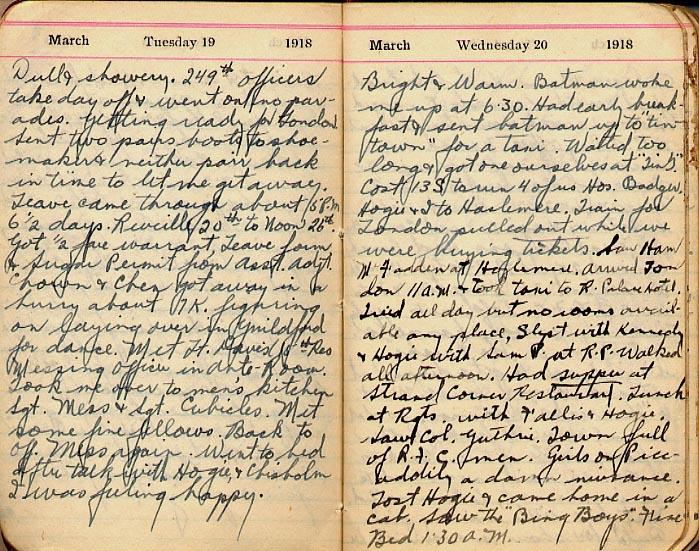 March Tuesday 19 1918
Dull & showery. 249th officers
take day off & went on no par-
ades. Getting ready for London
Sent two pairs boots to shoe-
maker & neither pair back
in time to let me get away.
Leave came through about 6 P.M
6 1/2 days. Reveille 20th to Noon 26th.
Got 1/2 fare warrant, Leave form
& Sugar Permit from asst. adjt.
Chown & Chen got away in a
hurry about 7K. figuring
on laying over in Guildford
for dance. Met Lt. Davies
Messing Officer in Ante-Room.
Took me over to men's kitchen
Sgt. Mess & Sgt. Cubicles. Met
some fine fellows. Back to
Off. Mess again. Went to bed
after talk with Hogie, & Chisholm
I was feeling happy.
March Wednesday 20 1918
Bright & Warm. Batman woke
me up at 6.30. Had early break-
fast & sent batman up to "tin
town" for a taxi. Waited too
long & got one ourselves at
Cost 13S to run 4 of us Hos. Badgw.
Hogie & I to Haslemere. Train for
London pulled out while we
were buying tickets. Saw Ham
McFadden at Haslemere, arrived Lon
don 11 A.M. & took taxi to R. Palace Hotel.
Tried all day but no rooms avail-
able any place, Slept with Kennedy
& Hogie with Sam P. at R.P. Walked
all afternoon. Had supper at
Strand Corner Restaurant. Lunch
at Rgts. with Fallis & Hogie.
Saw Col. Guthrie. Town full
of R.F.C. men. Girls on Picc-
addily a darn nuisance.
Lost Hogie & came home in a
cab. Saw the "Bing Boys". Fine
Bed 1.30 A.M.